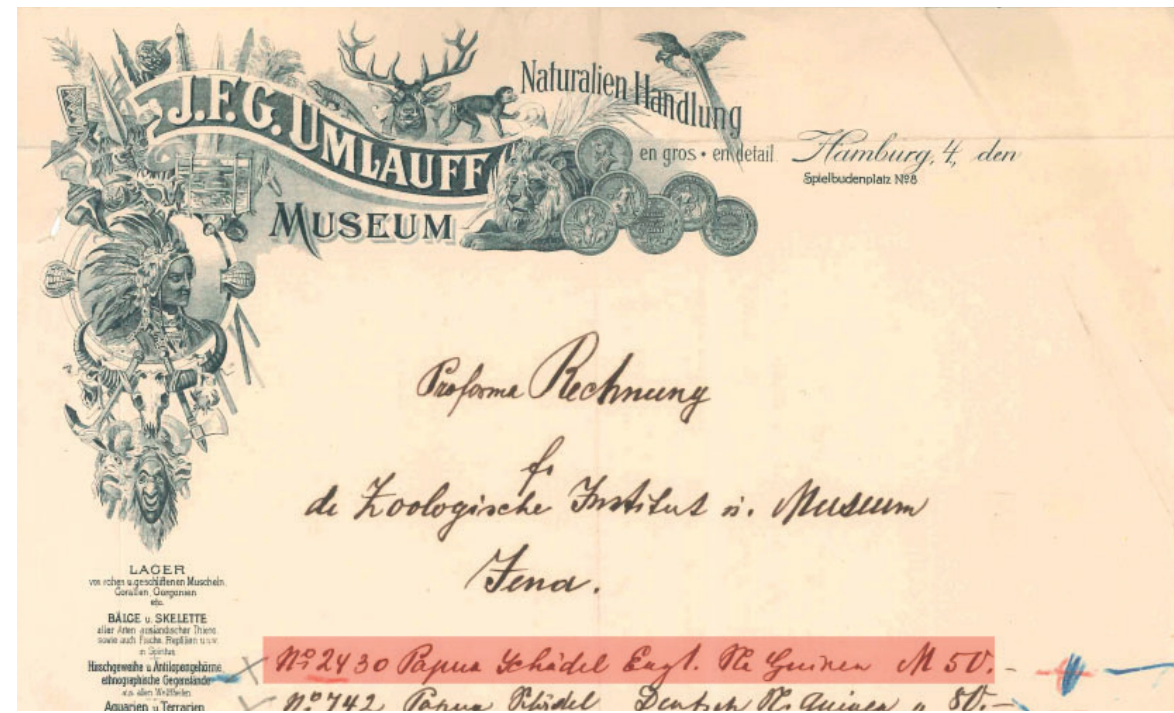 J.F.G. UMLAUFF
MUSEUM
Naturalien Handlung
en gros • en detail
Hamburg, 4, den
Spielbudenplatz Nº8
Proforma Rechnung
f.
de Zoologische Institut u. Museum
Jena.
LAGER
von rohen u. geschliffenen Muscheln,
Corallen, Gorgonien
etc.
BÄLGE u. SKELETTE
aller Arten ausländischer Thiere
sowie auch Fische, Reptilien u.s.w.
in Spiritus
Hirschgeweihe u. Antilopengehörne
ethnographische Gegenstände
aus allen Welttheilen
Aquarien u. Terrarien
Nº 2430 Papua Schädel Engl. Ne Guinea M 50.-
Nº 742 Papua Schädel Deutsch N. Guinea " 50.-